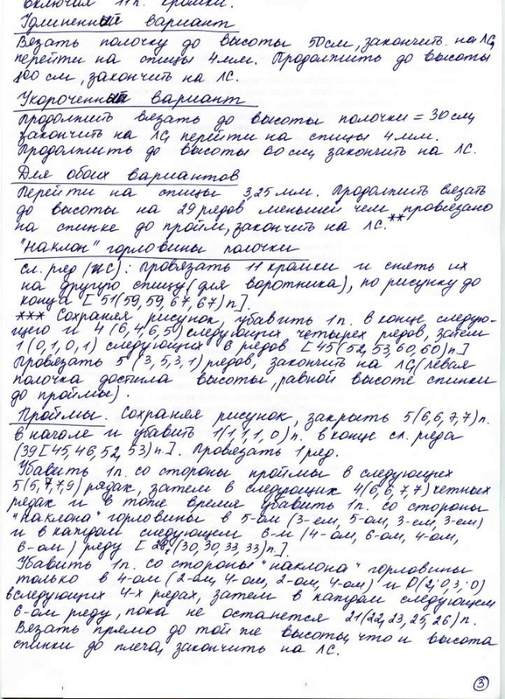 включая 11 п. кромки.
Удлиненный вариант
Вязать полочку до высоты 50см, закончить на ЛС,
перейти на спицы 4мм. Продолжить до высоты
100 см, закончить на ЛС.
Укороченный вариант
Продолжить вязать до высоты полочки = 30см,
закончить на ЛС, перейти на спицы 4мм.
Продолжить до высоты 60 см, закончить на ЛС.
Для обоих вариантов
Перейти на спицы 3,25 мм. Продолжить вязать
до высоты на 29 рядов меньшей чем провязано
на спинке до пройм, закончить на ЛС.**
"Наклон" горловины полочки
сл. ряд (ЖС): Провязать 11 кромки и снять их
на другую спицу (для воротника), по рисунку до
конца [51(59,59,67,67)п].
*** Сохраняя рисунок, убавить 1п. в конце следую-
щего и 4 (6,4,6,5) следующих четырех рядов, затем
1(0,1,0,1) следующих 6 рядов [45(52,53,60,60)п.]
Провязать 5 (3,5,3,1) рядов, закончить на ЛС (левая
полочка достигла высоты, равной высоте спинки
до проймы).
Проймы. Сохраняя рисунок, закрыть 5(6,6,7,7)п.
в начале и убавить 1(1,1,1,0)п. в конце сл. ряда
(39[45,46,52,53)п.]. Провязать 1 ряд.
Убавить 1п. со стороны проймы в следующих
5(5,7,7,9) рядах, затем в следующих 4(6,6,7,7) четных
рядах и в тоже время убавить 1п. со стороны
"наклона" горловины в 5-ом (3-ем, 5-ом, 3-ем, 3-ем)
и в каждом следующем 6-м (4-ом, 6-ом, 4-ом,
6-ом) ряду [28,(30,30,33,33)п.].
Убавить 1п. со стороны "наклона" горловины
только в 4-ом (2-ом, 4-ом, 2-ом, 4-ом) и 0(2,0,3,0)
следующих 4-х рядах, затем в каждом следующем
6-ом ряду, пока не останется 21(22,23,25,26)п.
Вязать прямо до той же высоты, что и высота
спинки до плеча, закончить на ЛС.
3